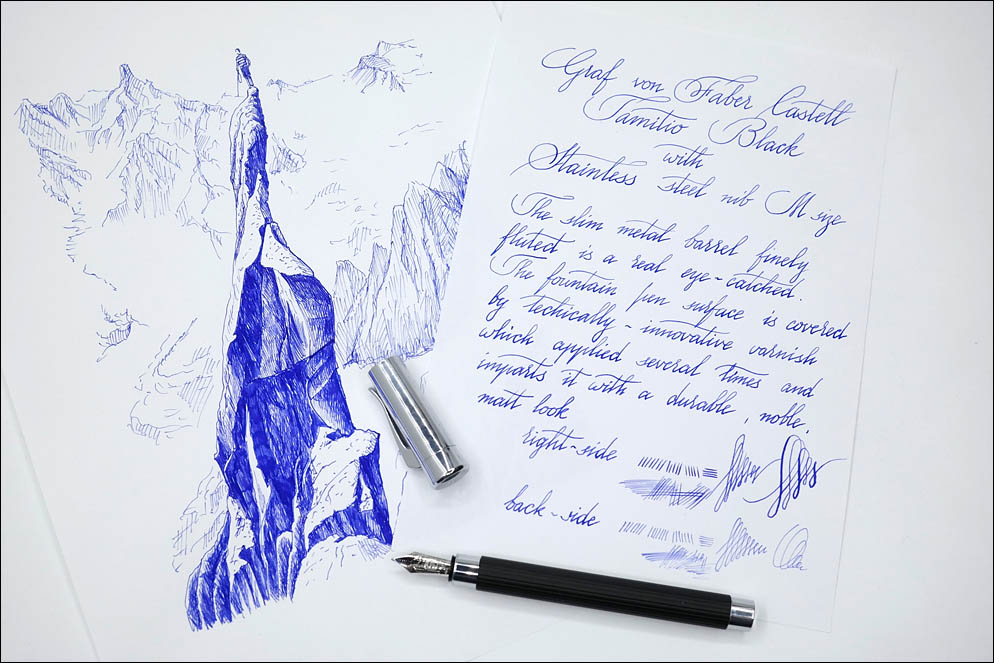 Graf von Faber Castell
Tamitio Black
with
Stainless steel nib M size
The slim metal barrel finely
fluted is a real eye-catched.
The fountain pen surface is covered
by techically-innovative varnish
which applied several times and
imparts it with a durable, noble,
matt look
right-side
back-side